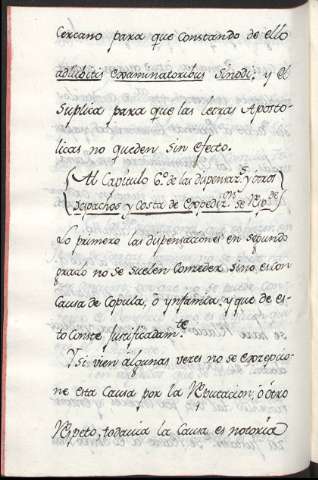 Cercano para que Constando de ello
adhibitis examinatoribus Sinodi.s y el
Suplica para que las letras Aposto-
licas no queden Sin efecto.
Al Capítulo 6.º de las dispensaz.s y otros
despachos y Costa de expediz.nes se Resp.de
Lo primero las dispensaciones en segundo
grado no se suelen Conceder sino es con
Causa de Copula, o ynfamia, y que de es-
to Conste Justificadam.te
Y si vien algunas veces no se expecpu-
ne esta Causa por la Reputacion, ó otro
Respeto, todauia la Causa es notoria